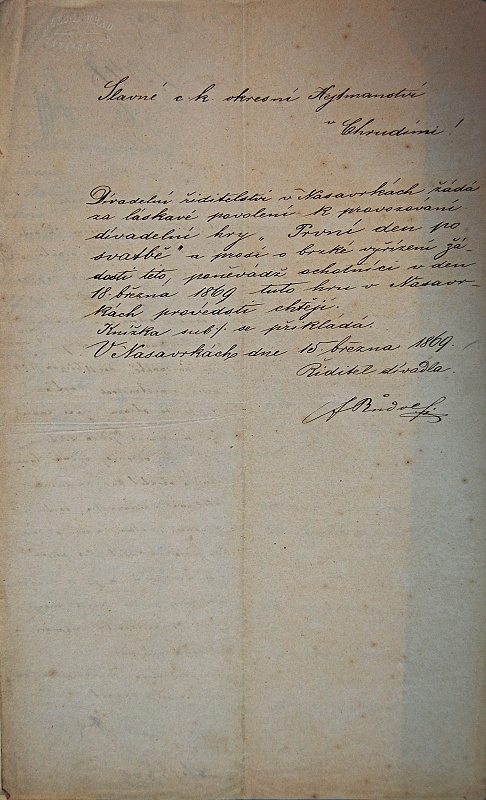 Slavné c. k. okresní Hejtmanství
v Chrudimi!
Divadelní řiditelství v Nasavrkách žádá
za láskavé povolení k provozování
divadelní hry „První den po
svatbě" a prosí o brzké vyřízení žá-
dosti této, poněvadž ochotníci v den
18. března 1869 tuto hru v Nasavr-
kách provésti chtějí.
Knížka sub /. se přikládá.
V Nasavrkách dne 15. března 1869.
Řiditel divadla.